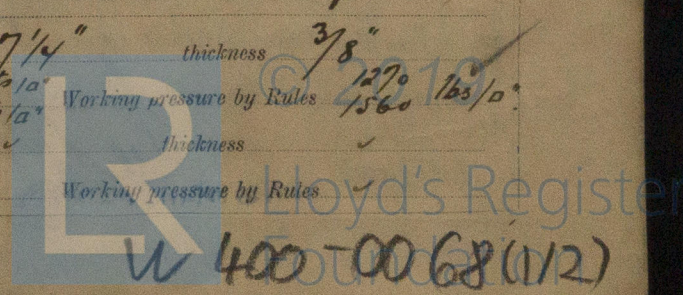 7 1/4" thickness 3/8"
1270
Working pressure by Rules 1560 lbs/□"
thickness ✓
Working pressure by Rules ✓
W400-0068(1/2)
© 2019
Lloyd's Register
Foundation
LR